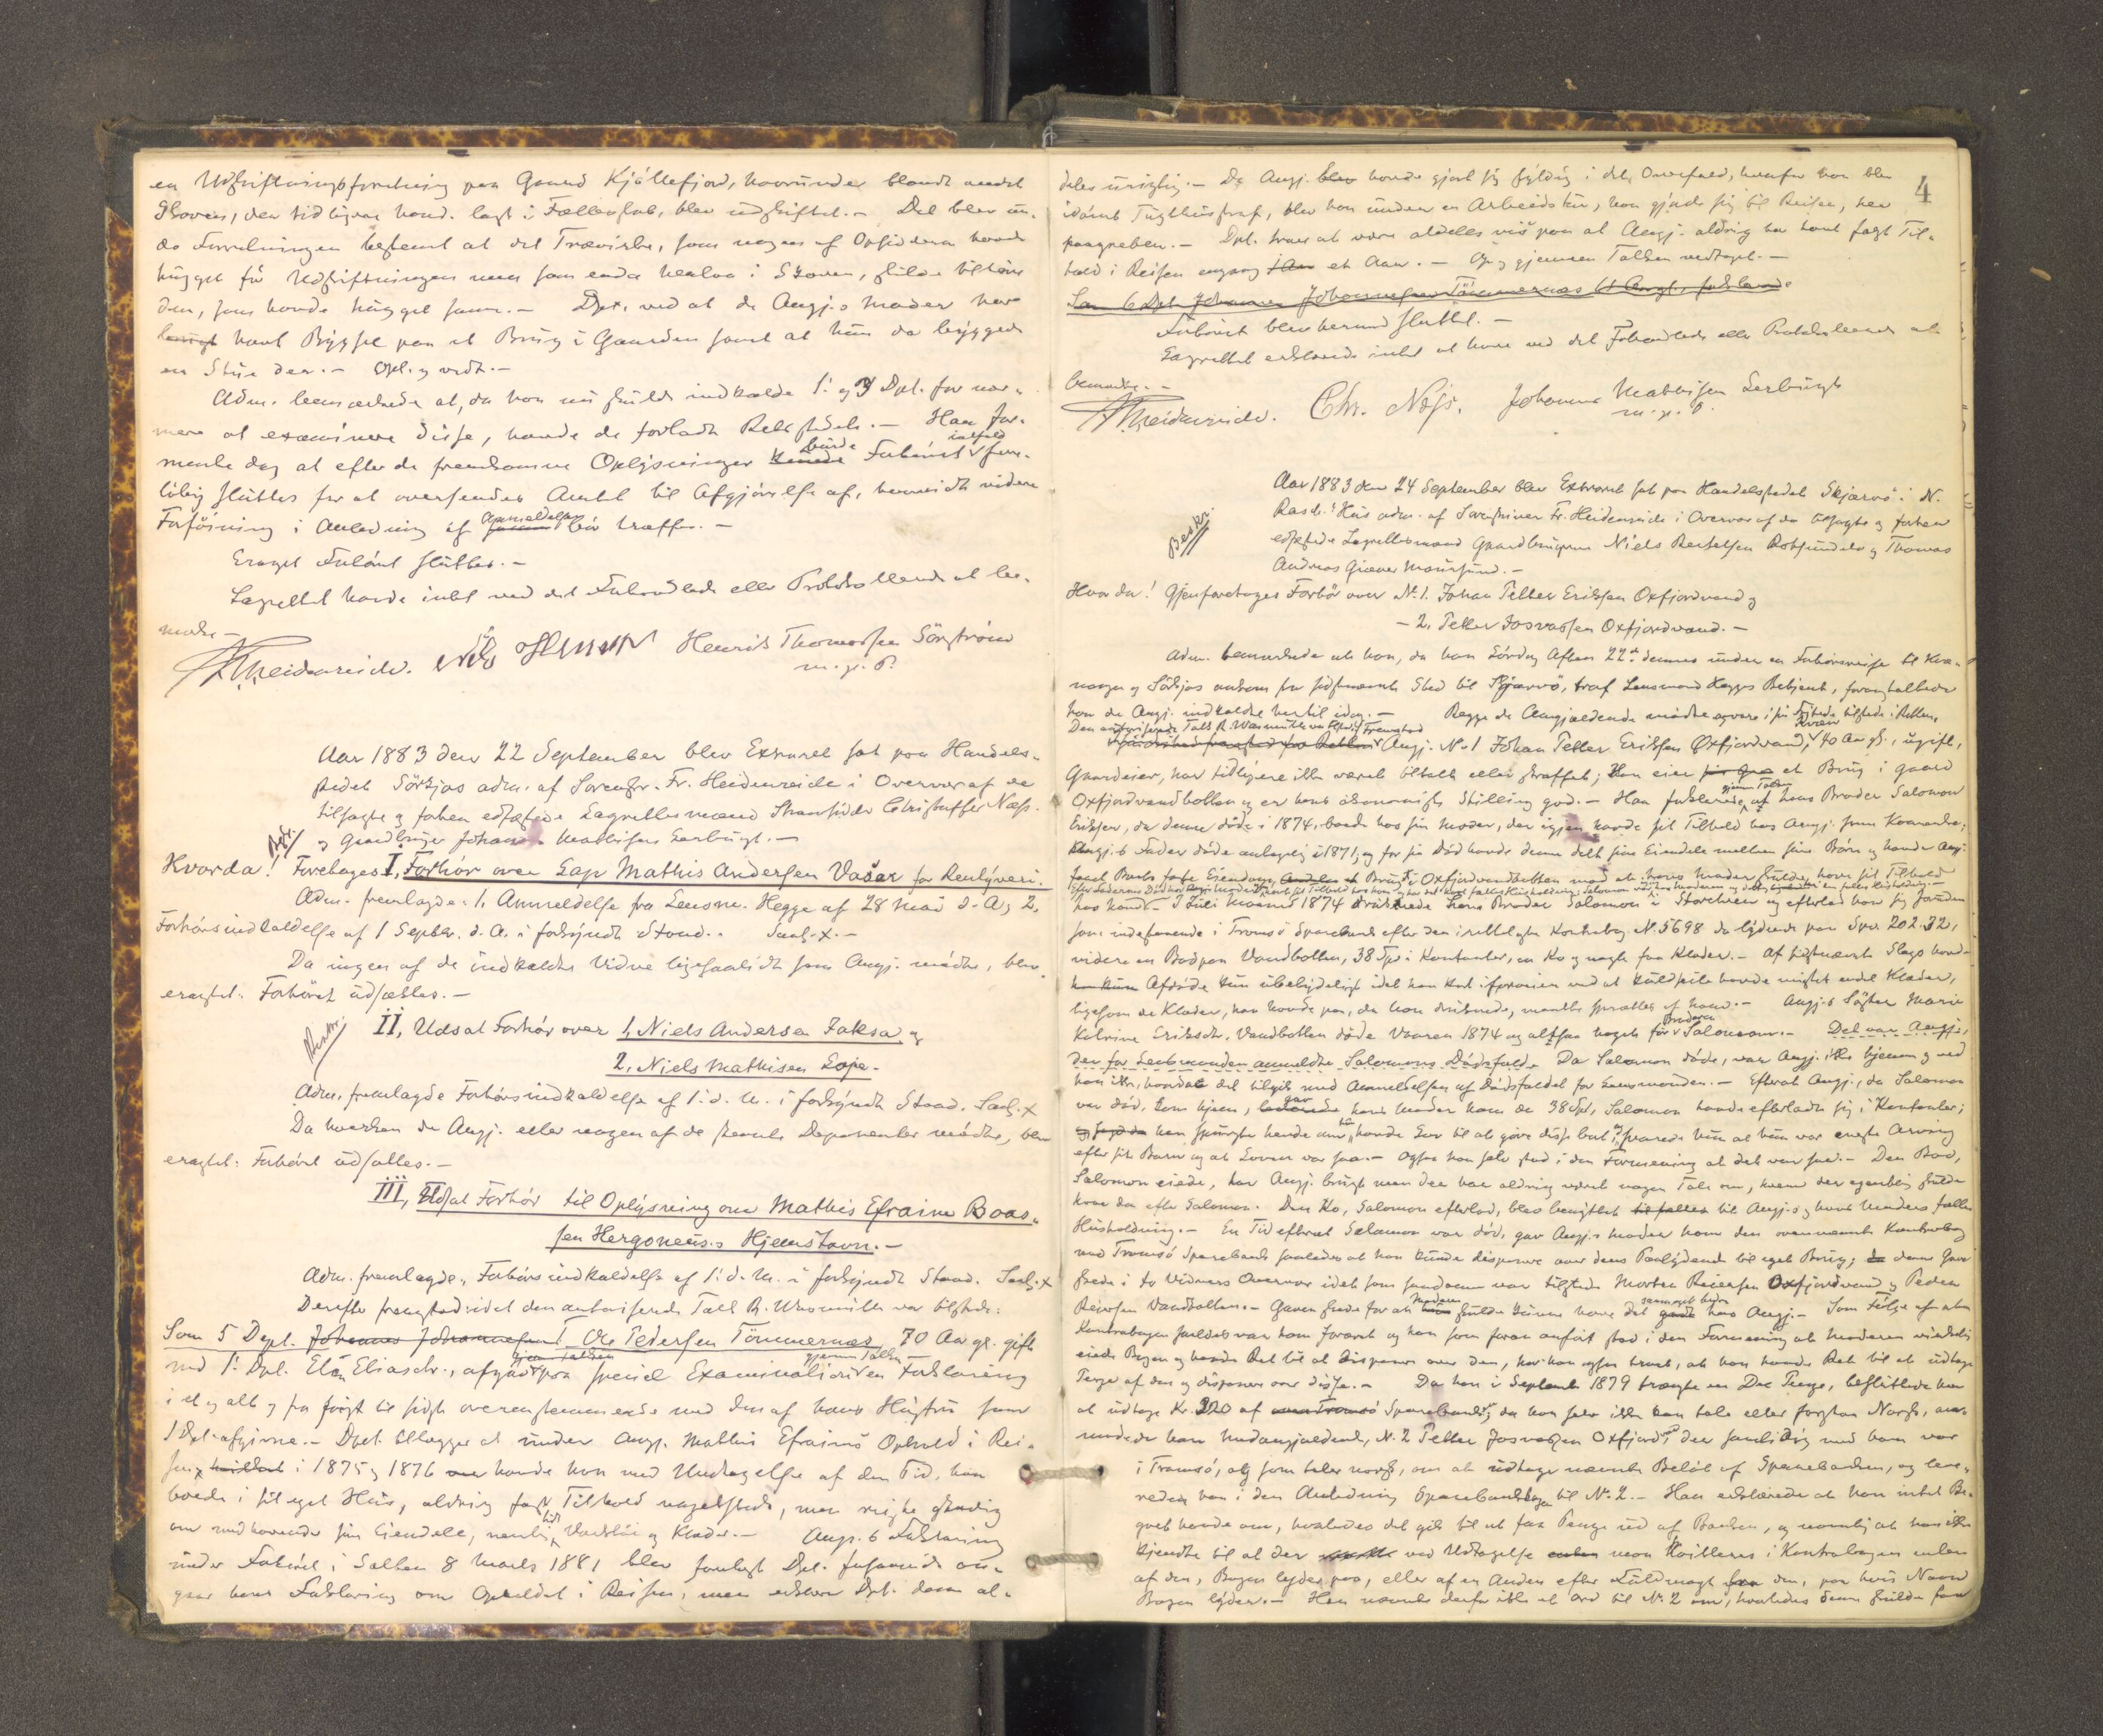 en Udskiftningsforretning paa Gaard Kjöllefjord, hvorunder blandt andet
Skoven, der tidligere havd. lagt i Fællesskab, blev udskiftet.- Det blev un-
do Forretningen bestemt at det Trævirke, som nogen af Opsidderne havde
hugget för Udskiftningen men som enda henlaa i Skoven, skulde tilhöre
den, som havde hugget samme.- Dpt. ved at de Angj.s Moder har
havt Bygsel paa et Brug i Gaarden samt at hun da byggede
en Stue der.- Opl. og vedt.-
Adm. bemærkede at, da han nu skulde indkalde 1! og 3 Dpt. for nær-
mere at examinere disse, havde de forladt Retsstedet.- Han for-
mente dog at efter de fremkomne Oplysninger burde Forhöret ialfald fore-
löbig sluttes for at oversendes Amtet til Afgjörelse af, hvorvidt videre
Forföining i Anledning af Anmeldelsen bör træffes.-
Eragtet Forhöret sluttes.-
Lagrettet havde intet ved det Forhandlede eller Protokollerede at be-
mærke.-
Fr. Heidenreich. Henrik Thomassen Sörström
m. p. P.
Aar 1883 den 22 September blev Extraret sat paa Handels-
stedet Sörkjos adm. af Sorenskr. Fr. Heidenreich i Overvær af de
tilsagte og forhen edfæstede Lagrettesmænd Strandsidder Christoffer Næss.
og Gaardbruger Johannes Mathisen Lerbugt.-
Hvorda! Foretoges I, Forhör over Lap Mathis Andersen Vasar for Rentyveri.
Adm. fremlagde: 1, Anmeldelse fra Lensm. Hegge af 28 Mai d. A. og 2,
Forhörsindkaldelse af 1 Septbr. d. A. i forkyndt Stand.. Saal. x.-
Da ingen af de indkaldte Vidner ligesaalidt som Angj. mödte, blev
eragtet: Forhöret udsættes.-
II, Udsat Forhör over 1, Niels Andersen Jaksa og
2, Niels Mathisen Lope.
Adm. fremlagde Forhörsindkaldelse af 1! d. M. i forkyndt Stand. Saal. x
Da hverken de Angj. eller nogen af de stevnte Deponenter mödte, blev
eragtet: Forhöret udsættes.-
III, Udsat Forhör til Oplysning om Mathis Efraim Boas-
sen Hergoneus's Hjemstavn.-
Adm. fremlagde: Forhörsindkaldelse af 1! d. M. i forkyndt Stand. Saal. x
Derefter fremstod idet den autoriserede Tolk R. Wasmuth var tilstede:
Som 5 Dept. Johannes Johannesen Ole Pedersen Tömmernæs 70 Aar gl. gift
med 1! Dpt. Elen Eliasdtr., afgav gjennem Tolken paa speciel Examination en Forklaring
i et og alt og fra först til sidst overensstemmende med den af hans Hustru som
1 Dpt. afgivne.- Dpt. tillægger at under Angj. Mathis Efraims Ophold i Rei-
sen i 1875 og 1876 havde han med Undtagelse af den Tid, han
boede i sit eget Hus, aldrig fast Tilhold nogetsteds, men reiste stadig
om medhavende sin Eiendele, nemlig lidt Værktöi og Klæder.- Angj.s Forklaring
under Forhöret i Salten 8 Marts 1881 blev forelagt Dpt. forsaavidt an-
gaar hans Forklaring om Opholdet i Reisen, men erklærer Dpt. denne al-
4
deles urigtig.- Da Angj. havde gjort sig skyldig i det Overfald, hvorfor han blev
idömt Tugthusstraf, blev han under en Arbeidstur, han gjorde sig til Reisen, her
paagreben.- Dpt. tror at være aldeles vis paa at Angj. aldrig har havt fast Til-
hold i Reisen engang et Aar.- Op. og gjennem Tolken vedtaget.-
Som 6 Dpt. Johannes Johannesen Tömmernæs 61 Aar gl., forklarede
Forhöret blev herved sluttet.-
Lagrettet erklærede intet at have ved det Forhandlede eller Protokollerede at
bemærke.-
Fr. Heidenreich. Chr. Næss. Johannes Mathisen Lerbugt
m. p. P.
Aar 1883 den 24 September blev Extraret sat paa Handelsstedet Skjærvö i N.
Rasch's Hus adm. af Sorenskriver Fr. Heidenreich i Overvær af de tilsagte og forhen
edfæstede Lagrettesmænd Gaardbrugerne Niels Bertelsen Rotsundelv og Thomas
Andreas Giæver Maursund.-
Hvorda! Gjenforetoges Forhör over No 1. Johan Petter Eriksen Oxfjordvand og
- 2. Petter Josvassen Oxfjordvand.-
Adm. bemærkede at han, da han Lördag Aften 22de dennes under en Forhörsreise til Kvæ-
nangen og Sörkjos ankom fra sidstnævnte Sted til Skjærvö, traf Lensmand Hegges Betjent, foranstaltede
han de Angj. indkaldt hertil idag.- Begge de Angjældende mödte
Den autoriserede Tolk R. Wasmuth var tilstede. Fremstod
Angj. No 1 Johan Petter Eriksen Oxfjordvand, Kvæn 40 Aar gl., ugift,
Gaardeier, har tidligere ikke været tiltalt eller straffet; Han eier et Brug i Gaard
Oxfjordvandbotten og er hans ökonomiske Stilling god.- Han forklarede gjennem Tolken af hans Broder Salomon
Eriksen, da denne döde i 1874, boede hos sin Moder, der igjen havde sit Tilhold hos Angj.
Angj.s Fader döde antagelig i 1871, og för sin Död havde denne delt sine Eiendele mellem sine Börn
hos ham.- I Juli Maaned 1874 druknede hans Broder Salomon i Storelven og efterlod han sig foruden
som indestaaende i Tromsö Sparebank efter den i rettelagte Kontrabog No. 5698 da lydende paa Spd. 202.32,
videre en Baad paa Vandbotten, 38 Spd i Kontanter, en Ko og nogle faa Klæder.-
ligesom de Klæder, han havde paa, da han druknede,
Katrine Eriksdtr. Vandbotten döde Vaaren 1874 og altsaa noget för Broderen Salomon.- Det var Angj.,
der for Lensmanden anmeldte Salomons Dödsfald. Da Salomon döde, var Angj. ikke hjemme og ved
han ikke, hvordan det tilgik med Anmeldelsen af Dödsfaldet for Lensmanden.- Efterat Angj., da Salomon
var död, kom hjem, gav hans Moder ham de 38 Spd, Salomon havde efterladt sig i Kontanter;
han spurgte hende om hun havde Lov til at give disse bort, og svarede hun at hun var eneste Arving
efter sit Barn og at Loven var saa.- Ogsaa han selv stod i den Formening at det var saa.- Den Baad,
Salomon eiede, har Angj. brugt men der har aldrig været nogen Tale om, hvem der egentlig skulde
have den efter Salomon. Den Ko, Salomon efterlod, blev benyttet til Angj.s og hans Moders fælles
Husholdning.- En Tid efterat Salomon var död, gav Angj.s Moder ham den ovennævnte Kontrabog
med Tromsö Sparebank saaledes at han kunde disponere over dens Paalydende til eget Brug; denne Gave
skede i to Vidners Overvær idet som saadanne var tilstede Morten Reiersen Oxfjordvand og Peder
Reiersen Vandbotten.- Gaven skede for at Moderen skulde kunne have det saameget bedre hos Angj.- Som Fölge af at
Kontrabogen saaledes var ham foræret og han som foran anfört stod i den Formening at Moderen virkelig
eiede Bogen og havde Ret til at disponere over den, har han ogsaa troet, at han havde Ret til at udtage
Penge af den og disponere over disse.- Da han i Septemb 1879 trængte en Del Penge, besluttede han
at udtage Kr. 320 af Sparebanken; da han selv ikke kan tale eller forstaa Norsk, an-
modede han Medangjældende, No. 2 Petter Josvassen Oxfjordvd der samtidig med ham var
i Tromsö, og som taler norsk, om at udtage nævnte Belöb af Sparebanken, og leve-
rede han i den Anledning Sparebankbogen til No 2.- Han erklærede at han intet Be-
greb havde om, hvorledes det gik til at faa Penge ud af Banken, og navnlig at han ikke
kjendte til at der ved Udtagelse maa kvitteres i Kontrabogen enten
af den, Bogen lyder paa, eller af en Anden efter Fuldmagt fra den, paa hvis Navn
Bogen lyder.- Han nævnte derfor ikke et Ord til No 2 om, hvorledes denne skulde faa